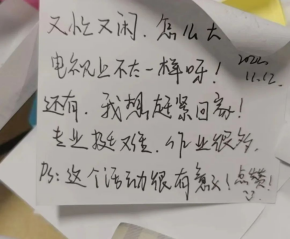 又忙又闲,怎么大
电视上不太一样呀!
2024
11.12.
还有,我想赶紧回家!
专业挺难,作业很多,
Ps:这个活动很有意义(点赞!